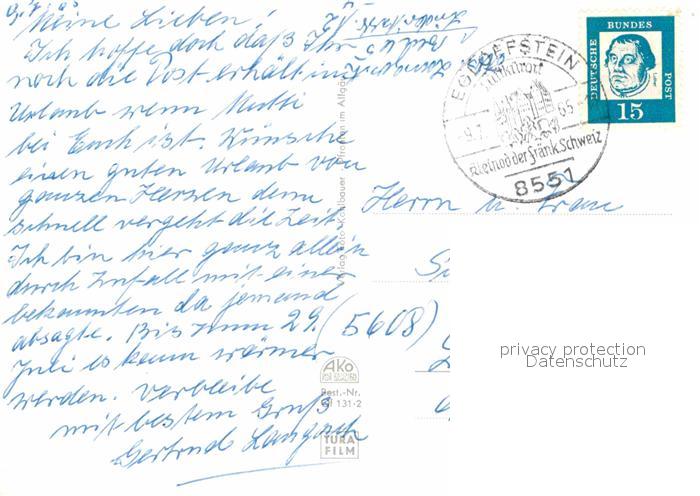 Meine Lieben!
Ich hoffe doch daß Ihr
noch die Post erhält im
Urlaub wenn Mutti
bei Euch ist. Wünsche
einen guten Urlaub von
ganzen Herzen denn
schnell vergeht die Zeit.
Ich bin hier ganz allein
durch Zufall mit einer
bekannten da jemand
absagte. Bis zum 29.
Juli es kann wärmer
werden. Verbleibe
mit bestem Gruß
Gertrud
EGLOFFSTEIN
9.7. 65
Kleinod der Fränk. Schweiz
8551
DEUTSCHE
BUNDES
POST
15
Herrn u. Frau
(5608)
AKO
Best.-Nr.
131-2
TURA
FILM
privacy protection
Datenschutz